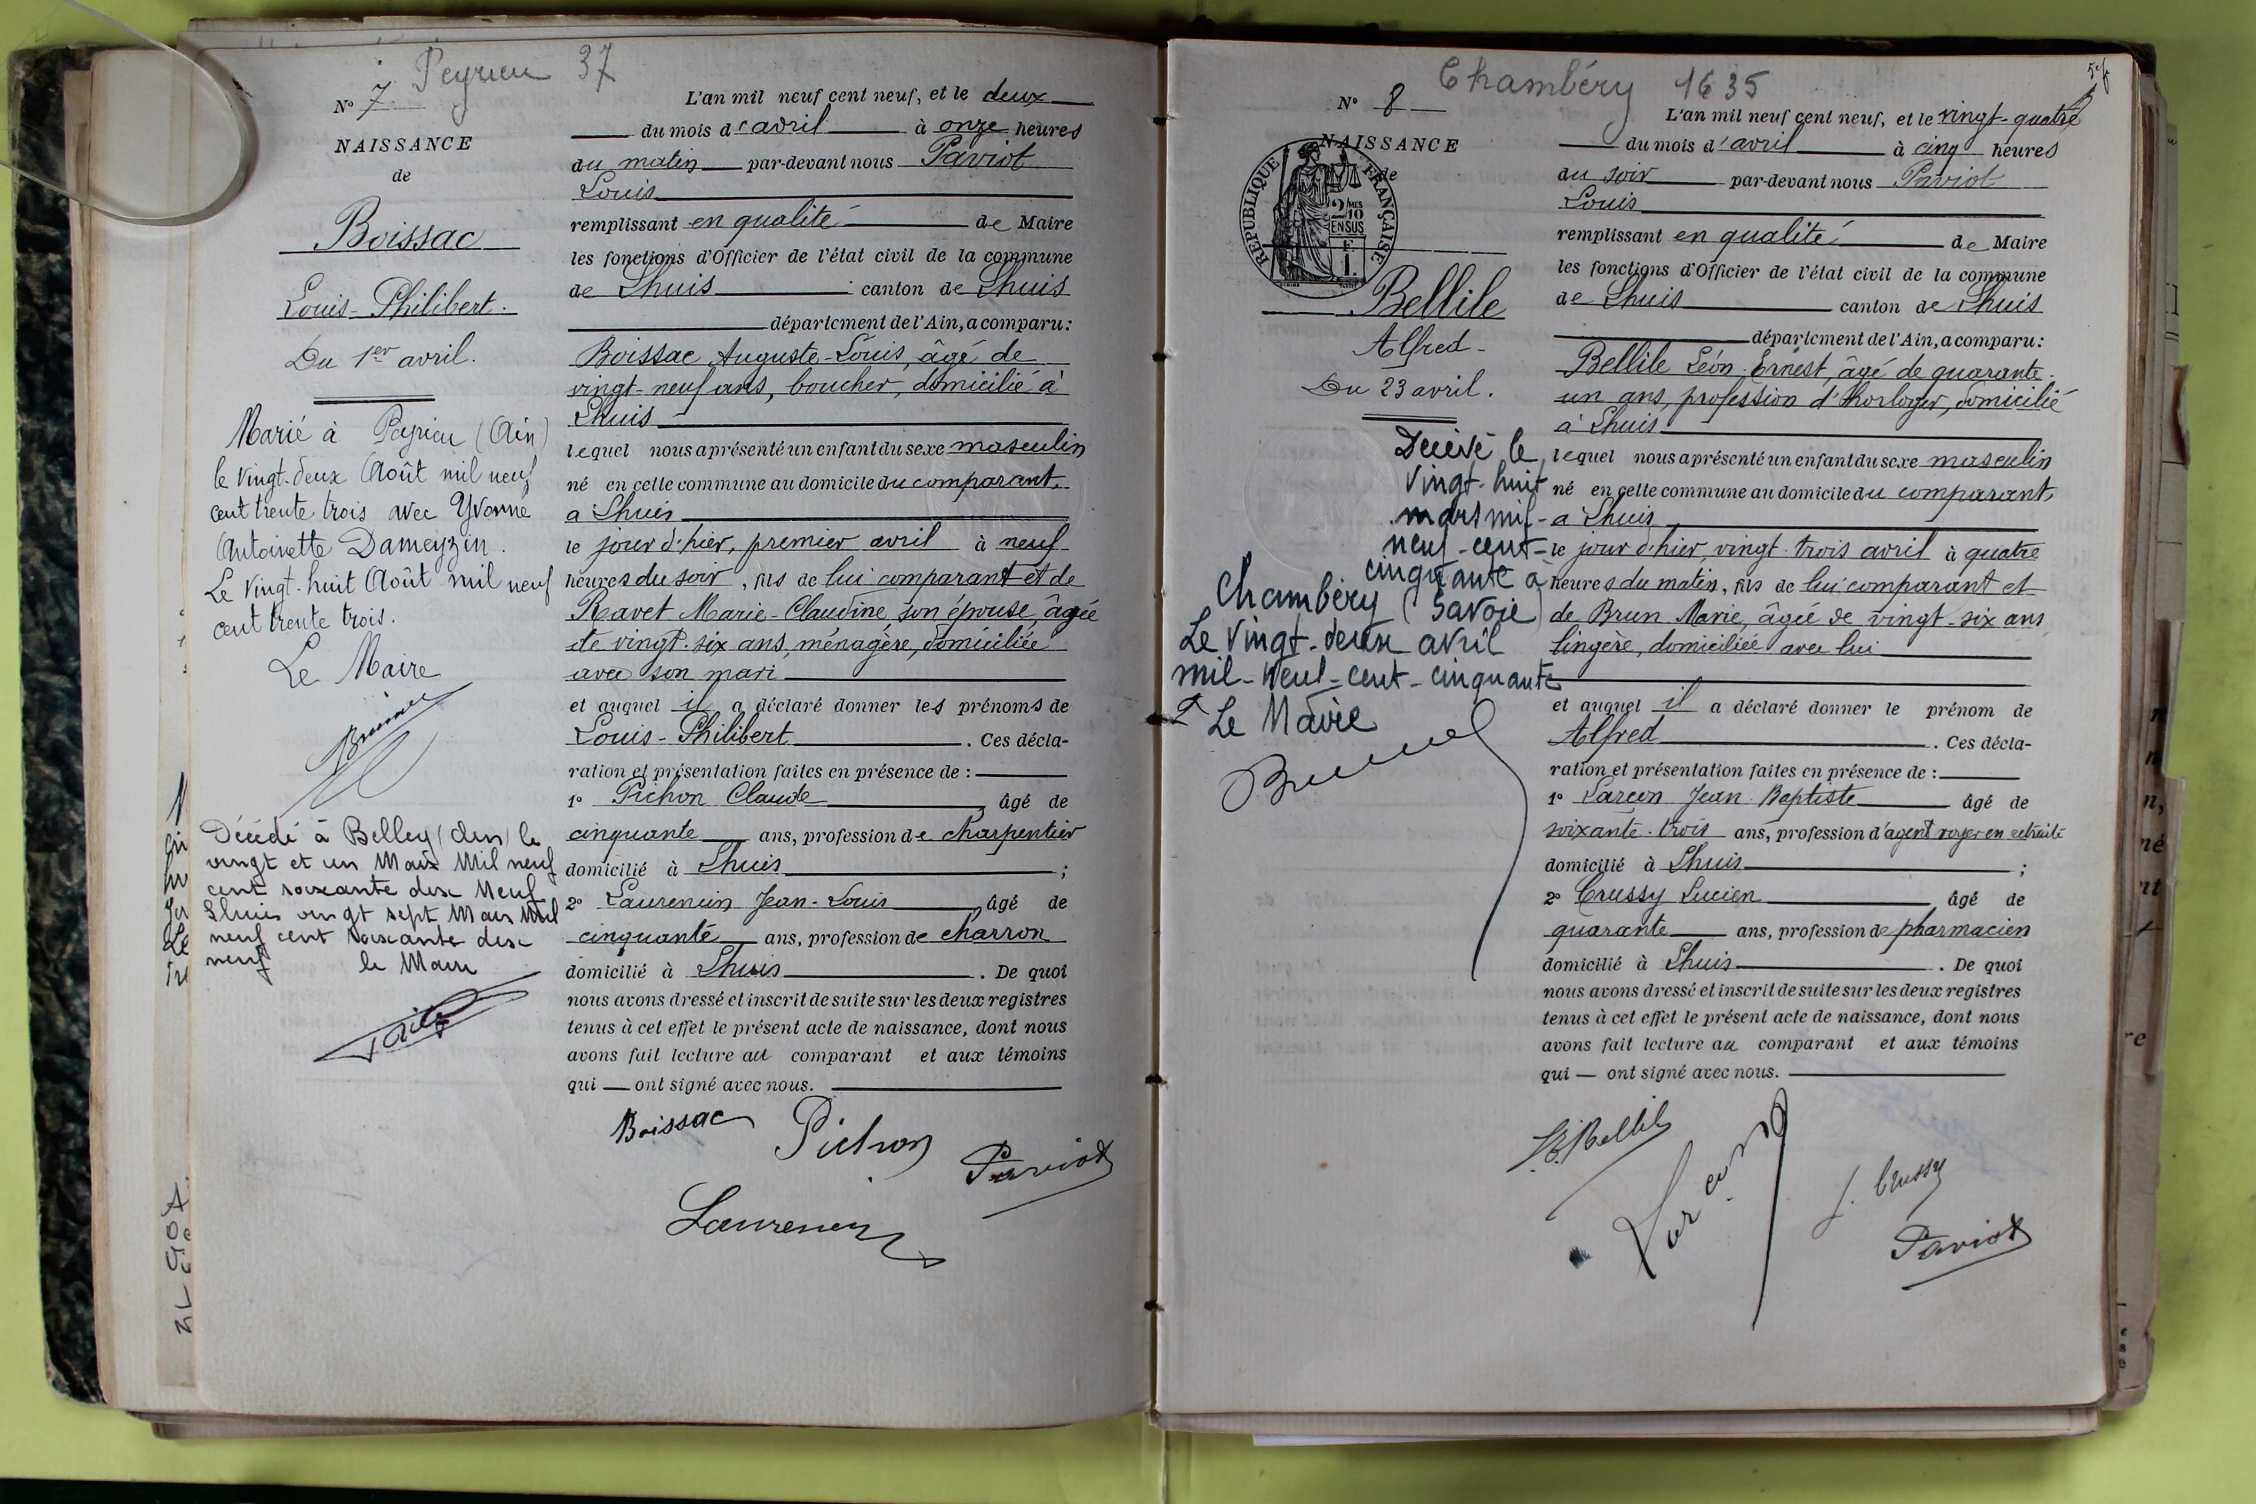 Peyrieu 37
N° 7
NAISSANCE
de
Boissac
Louis-Philibert.
Du 1er avril.
Marié à Peyrieu (Ain)
le vingt-deux Août mil neuf
cent trente trois avec Yvonne
Antoinette Dameyzin.
Le vingt-huit Août mil neuf
cent trente trois.
Le Maire
Décédé à Belley (Ain) le
vingt et un Mars Mil neuf
cent soixante dix Neuf
Lhuis vingt sept Mars Mil
neuf cent soixante dix
neuf le Maire
L'an mil neuf cent neuf, et le deux
du mois d'avril à onze heures
du matin par-devant nous Paviot
Louis
remplissant en qualité de Maire
les fonctions d'Officier de l'état civil de la commune
de Lhuis canton de Lhuis
département de l'Ain, a comparu:
Boissac Auguste-Louis, âgé de
vingt-neuf ans, boucher, domicilié à
Lhuis
lequel nous a présenté un enfant du sexe masculin
né en cette commune au domicile du comparant
à Lhuis
le jour d'hier, premier avril à neuf
heures du soir, fils de lui comparant et de
Ravet Marie-Claudine, son épouse, âgée
de vingt-six ans, ménagère, domiciliée
avec son mari
et auquel il a déclaré donner les prénoms de
Louis-Philibert. Ces décla-
ration et présentation faites en présence de :
1° Pichon Claude, âgé de
cinquante ans, profession de charpentier
domicilié à Lhuis ;
2° Laurencin Jean-Louis, âgé de
cinquante ans, profession de charron
domicilié à Lhuis. De quoi
nous avons dressé et inscrit de suite sur les deux registres
tenus à cet effet le présent acte de naissance, dont nous
avons fait lecture au comparant et aux témoins
qui ont signé avec nous.
Boissac
Pichon
Paviot
Laurencin
Chambéry 1635
N° 8
NAISSANCE
de
RÉPUBLIQUE FRANÇAISE
2/10 MES
EN SUS
Bellile
Alfred
Du 23 avril.
Décédé le
vingt-huit
mars mil-
neuf-cent-
cinquante à
Chambéry (Savoie)
Le vingt-deux avril
mil-neuf-cent-cinquante
Le Maire
L'an mil neuf cent neuf, et le vingt-quatre
du mois d'avril à cinq heures
du soir par-devant nous Paviot
Louis
remplissant en qualité de Maire
les fonctions d'Officier de l'état civil de la commune
de Lhuis canton de Lhuis
département de l'Ain, a comparu:
Bellile Léon-Ernest, âgé de quarante-
un ans, profession d'horloger, domicilié
à Lhuis
lequel nous a présenté un enfant du sexe masculin
né en cette commune au domicile du comparant
à Lhuis
le jour d'hier, vingt-trois avril à quatre
heures du matin, fils de lui comparant et
de Brun Marie, âgée de vingt-six ans
lingère, domiciliée avec lui
et auquel il a déclaré donner le prénom de
Alfred. Ces décla-
ration et présentation faites en présence de :
1° Jean Baptiste âgé de
soixante-trois ans, profession d'agent voyer en retraite
domicilié à Lhuis ;
2° Crussy Lucien, âgé de
quarante ans, profession de pharmacien
domicilié à Lhuis. De quoi
nous avons dressé et inscrit de suite sur les deux registres
tenus à cet effet le présent acte de naissance, dont nous
avons fait lecture au comparant et aux témoins
qui ont signé avec nous.
Bellile
Crussy
Paviot